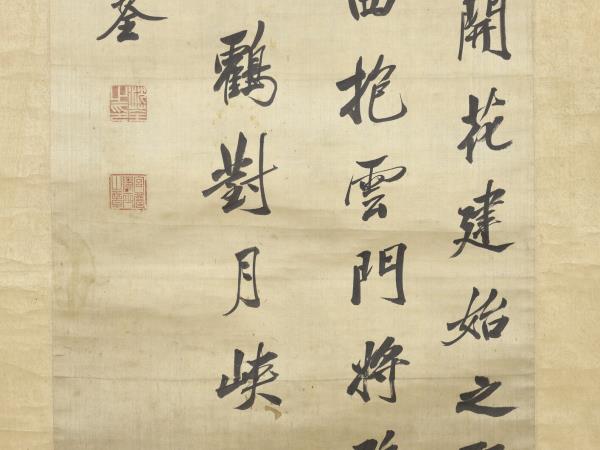 開花建始之
抱雲門將
鸛對月峽
荃